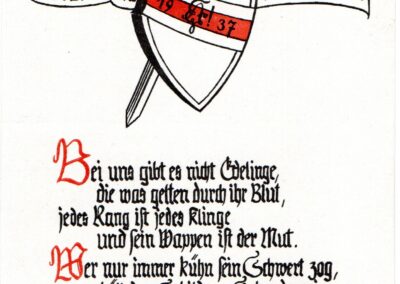 19 37
Bei uns gibt es nicht Edelinge,
die was gelten durch ihr Blut,
jedes Rang ist jedes Klinge
und sein Wappen ist der Mut.
Wer nur immer kühn sein Schwert zog,